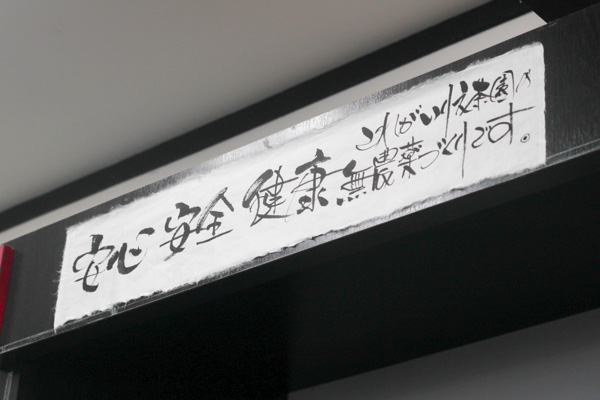 安心 安全 健康
これがいりえ茶園の
無農薬づくりです。